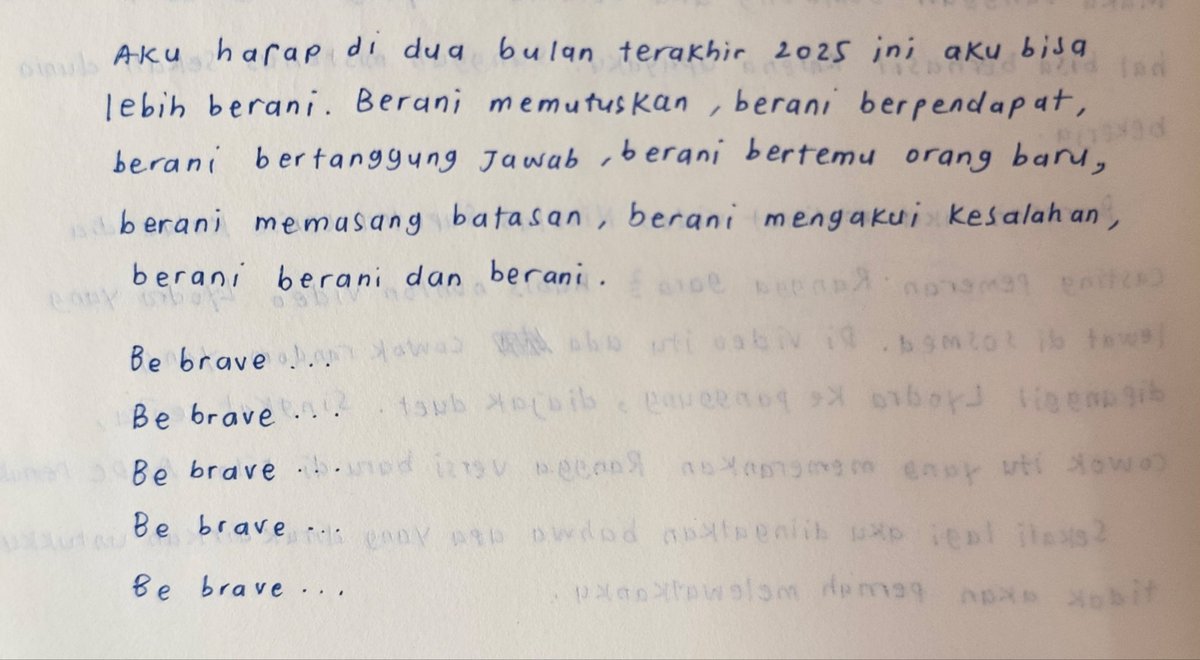 Aku harap di dua bulan terakhir 2025 ini aku bisa
lebih berani. Berani memutuskan, berani berpendapat,
berani bertanggung Jawab, berani bertemu orang baru,
berani memasang batasan, berani mengakui kesalahan,
berani berani dan berani.
Be brave ....
Be brave ....
Be brave ....
Be brave ...
Be brave ...